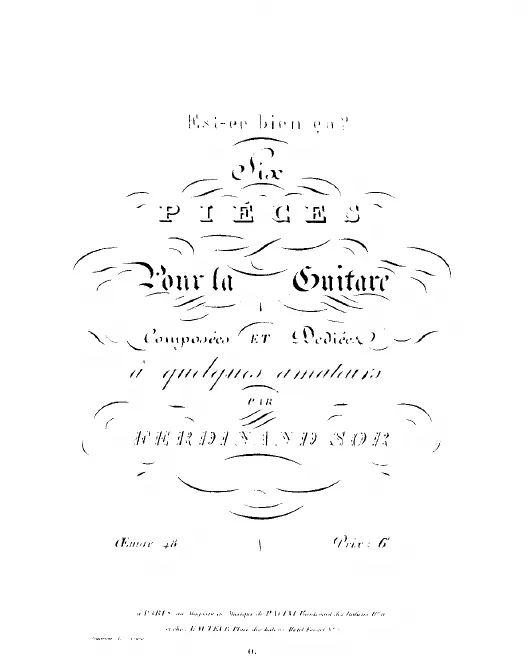 Est-ce bien ça?
Six
PIÉCES
Pour la Guitare
Composées ET Dediées
à quelques amateurs
PAR
FERDINAND SOR
Œuvre 48 Prix: 6
à PARIS, au Magasin de Musique de PACINI, Boulevard des Italiens, N° 11
et chez l'AUTEUR, Place des Italiens, Hôtel Favart N°